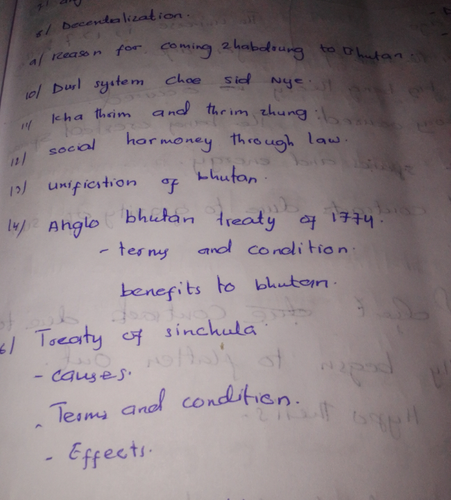 8/ Decentralization.
9/ Reason for coming Zhabdrung to Bhutan.
10/ Dual system Choe Sid Nye.
11/ Kha thrim and thrim zhung.
12/ social harmoney through law.
13/ unification of bhutan.
14/ Anglo bhutan treaty of 1774.
- terms and condition.
benefits to bhutan.
6/ Treaty of sinchula
- causes.
- Terms and condition.
- Effects.